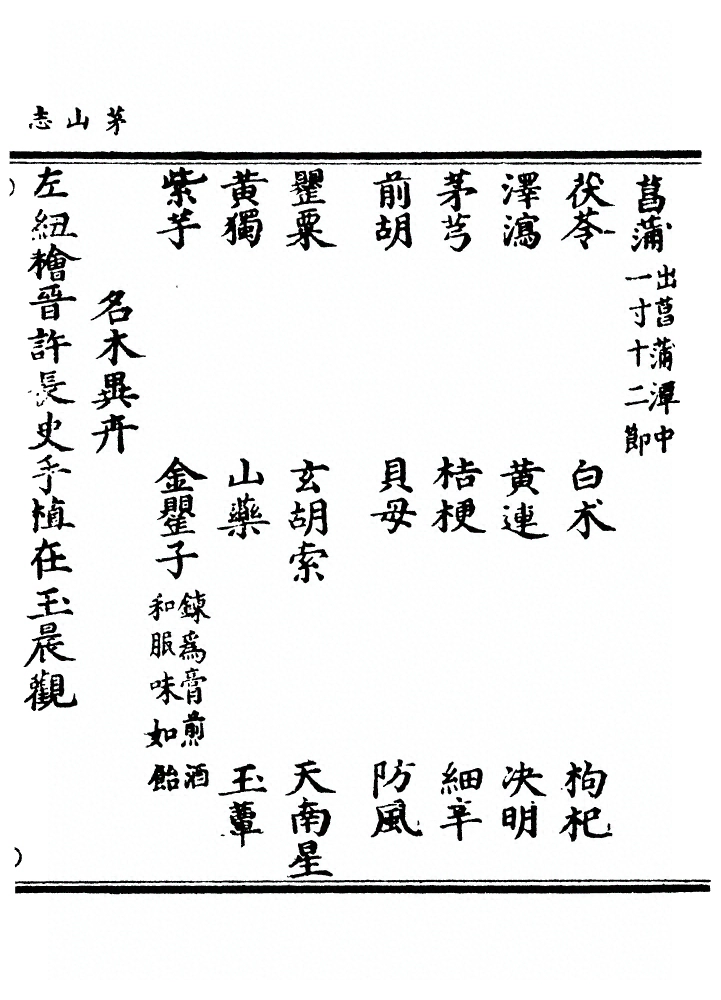 茅山志
菖蒲出菖蒲潭中一寸十二節
茯苓 白朮 枸杞
澤瀉 黃連 决明
茅芎 桔梗 細辛
前胡 貝母 防風
罌粟 玄胡索 天南星
黃獨 山藥 玉蕈
紫芋 金罌子鍊爲膏煎酒和服味如飴
名木異卉
左紐檜晉許長史手植在玉晨觀